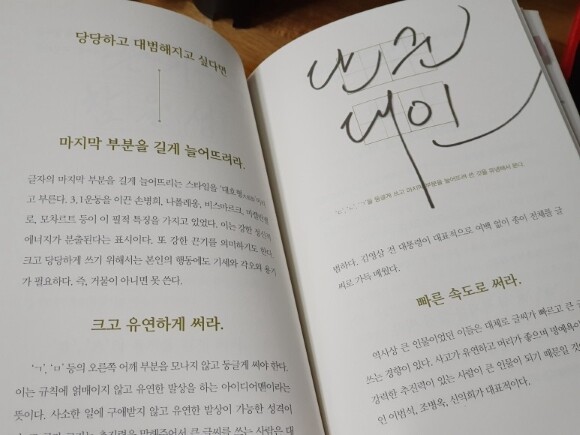 당당하고 대범해지고 싶다면
마지막 부분을 길게 늘어뜨려라.
글자의 마지막 부분을 길게 늘어뜨리는 스타일을 '대호형
고 부른다. 3.1운동을 이끈 손병희, 나폴레옹, 비스마르크,
로, 모차르트 등이 이 필적 특징을 가지고 있었다. 이는 강한 정신적
에너지가 분출된다는 표시이다. 또 강한 끈기를 의미하기도 한다.
크고 당당하게 쓰기 위해서는 본인의 행동에도 기세와 각오와 용기
가 필요하다. 즉, 거물이 아니면 못 쓴다.
크고 유연하게 써라.
'ㄱ', 'ㅁ' 등의 오른쪽 어깨 부분을 모나지 않고 둥글게 써야 한다.
이는 규칙에 얽매이지 않고 유연한 발상을 하는 아이디어맨이라는
뜻이다. 사소한 일에 구애받지 않고 유연한 발상이 가능한 성격이
큰 글씨를 쓰는 사람은 대
범하다. 김영삼 전 대통령이 대표적으로 여백 없이 종이 전체를 글
씨로 가득 메웠다.
빠른 속도로 써라.
역사상 큰 인물이었던 이들은 대체로 글씨가 빠르고 큰
쓰는 경향이 있다. 사고가 유연하고 머리가 좋으며 명예욕이
강력한 추진력이 있는 사람이 큰 인물이 되기 때문일 것
인 이범석, 조병옥, 신익희가 대표적이다.